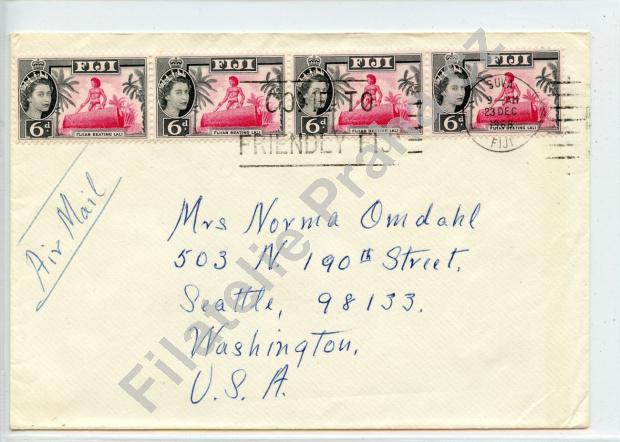 FIJI FIJI FIJI FIJI
6d 6d 6d 6d
FIJIAN BEATING LALI FIJIAN BEATING LALI FIJIAN BEATING LALI FIJIAN BEATING LALI
COME TO
FRIENDLY FIJI
SUVA
9 AM
23 DEC
1968
FIJI
Air Mail
Mrs Norma Omdahl
503 N. 190th Street,
Seattle, 98133.
Washington,
U.S.A.
Filatelie Praha